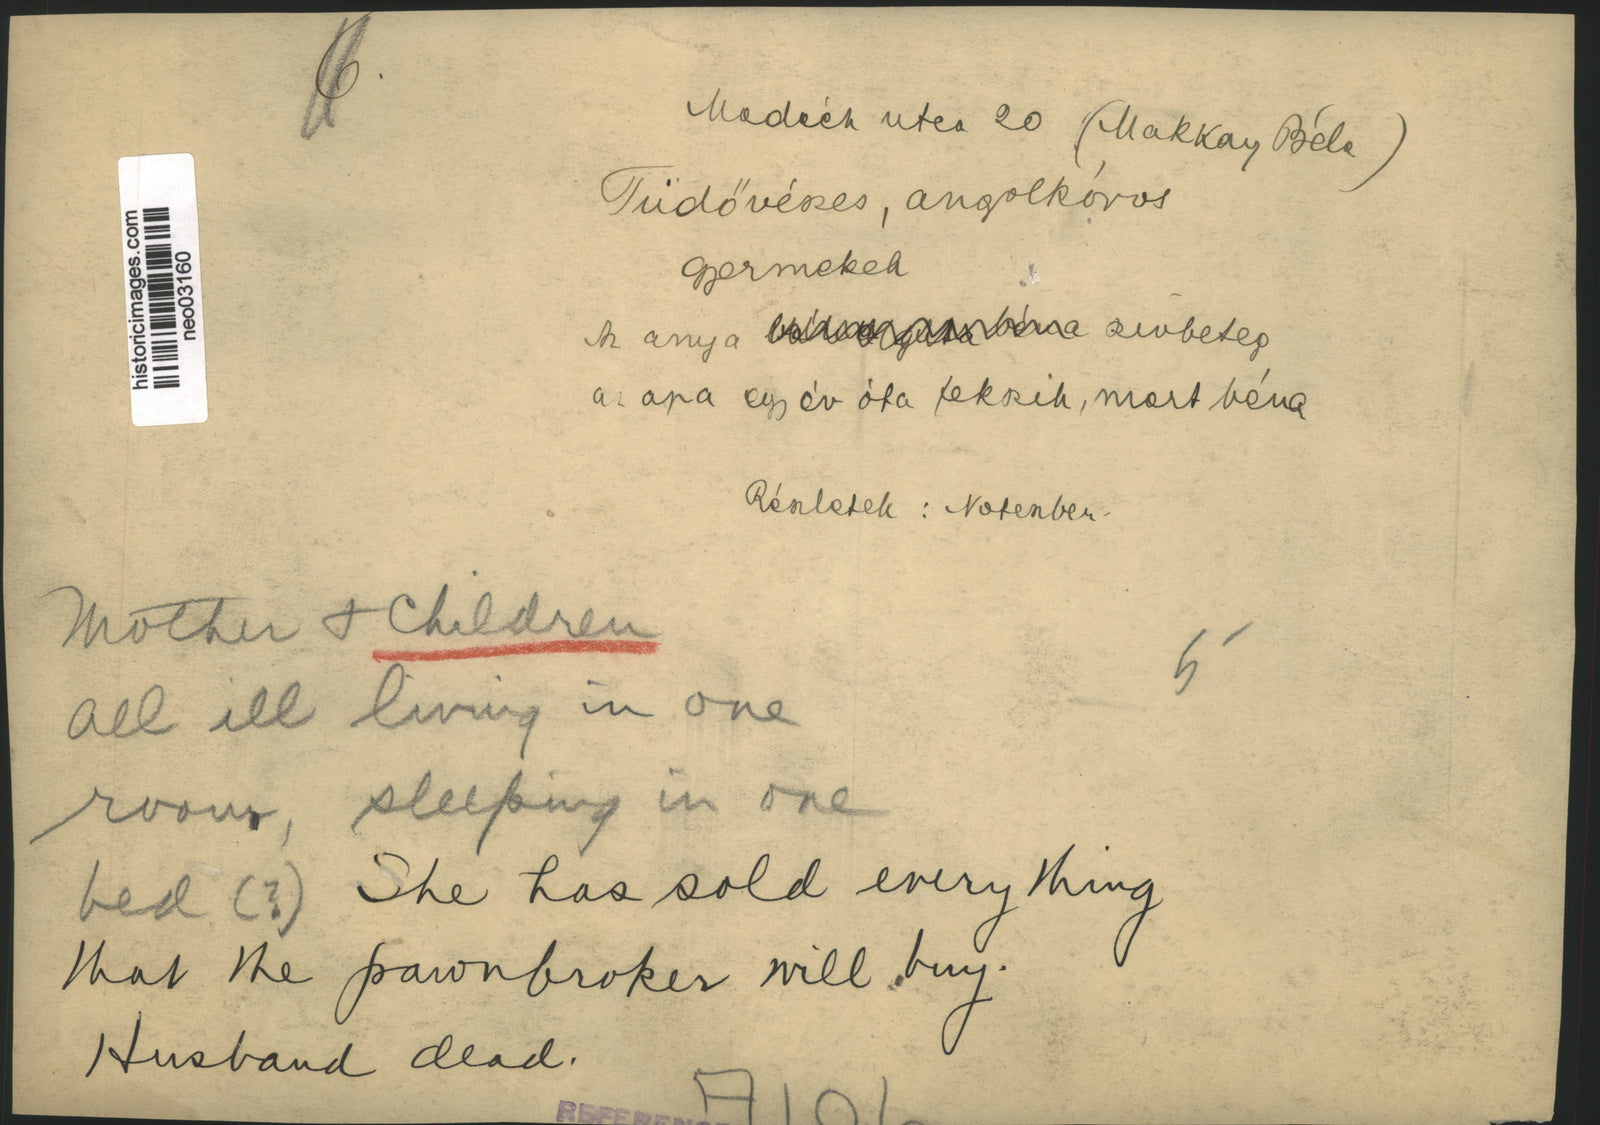 6.
Madách utca 20 (Makkay Béla)
Tüdővészes, angolkóros
gyermekek
Az anya szívbeteg
az apa egy év óta fekszik, mert béna
Részletek : Notenber-
historicimages.com
neo03160
Mother + Children
all ill living in one
room, sleeping in one
bed (?) She has sold everything
that the pawnbroker will buy.
Husband dead.
REFERENCE